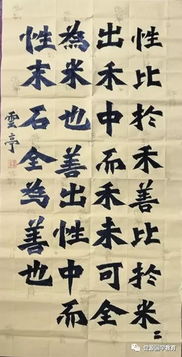 性比於禾善比於米二
出禾中而禾未可全
為米也善出性中而
性未可全為善也
雲亭
国学教育